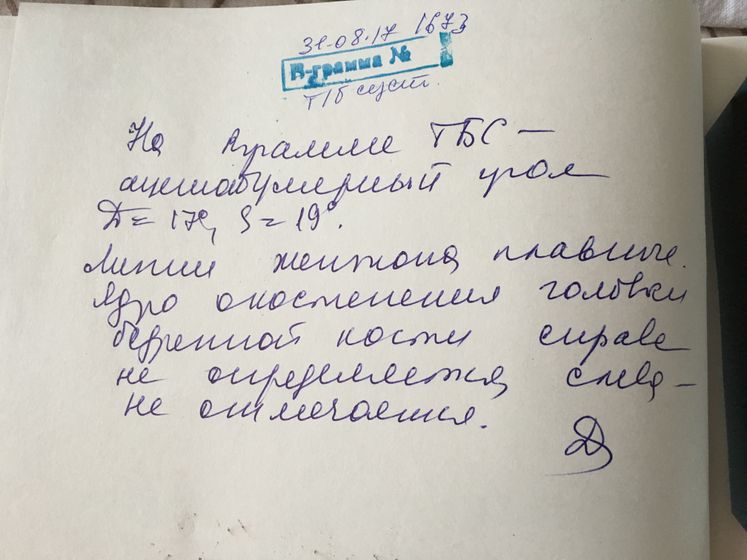 31-08.17 1673
R-грамма №
Т/Б суст.
На Rграмме ТБС –
ацетабулярный угол
D = 17°, S = 19°.
Линии Шентона плавные.
Ядро окостенения головки
бедренной кости справа
не определяется, слева –
не отмечается.